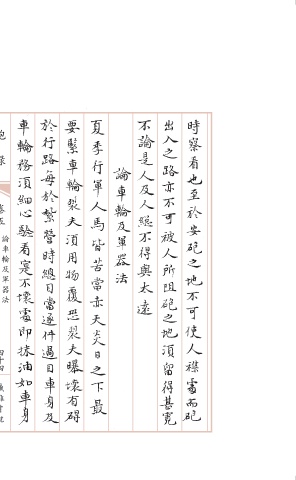 時察看也至於安砲之地不可使人襍處而砲
出入之路亦不可被人所阻砲之地須留得甚寬
不論是人及人總不得與太遠
論車輪及軍器法
夏季行軍人馬皆苦當赤天炎日之下最
要緊車輪裂夫須用物覆恐裂夫曝壞有碍
於行路每於紮營時總目當逐件過目車身及
車輪務須細心驗看寔不壞處即搽油如車身
論車輪及軍器法
四十四